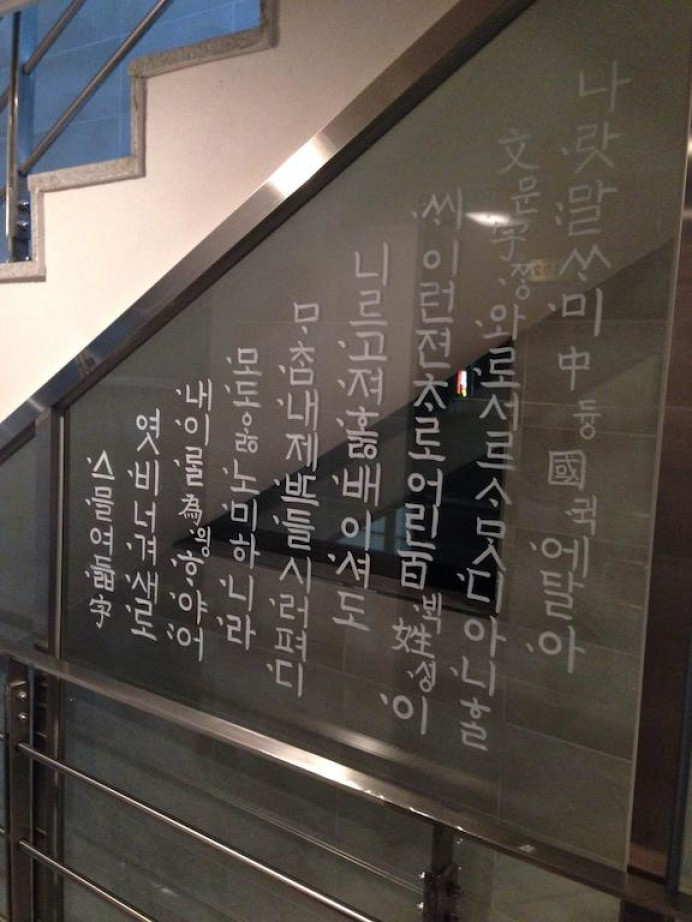 나랏말ᄊᆞ미中듕國귁에달아
文문字ᄍᆞᆼ와로서르ᄉᆞᄆᆞᆺ디아니ᄒᆞᆯ
ᄊᆡ이런젼ᄎᆞ로어린百ᄇᆡᆨ姓셩이
니르고져홇배이셔도
ᄆᆞᄎᆞᆷ내제ᄠᅳ들시러펴디
몯ᄒᆞᇙ노미하니라
내이ᄅᆞᆯ為윙ᄒᆞ야어
엿비너겨새로
스믈여듧字